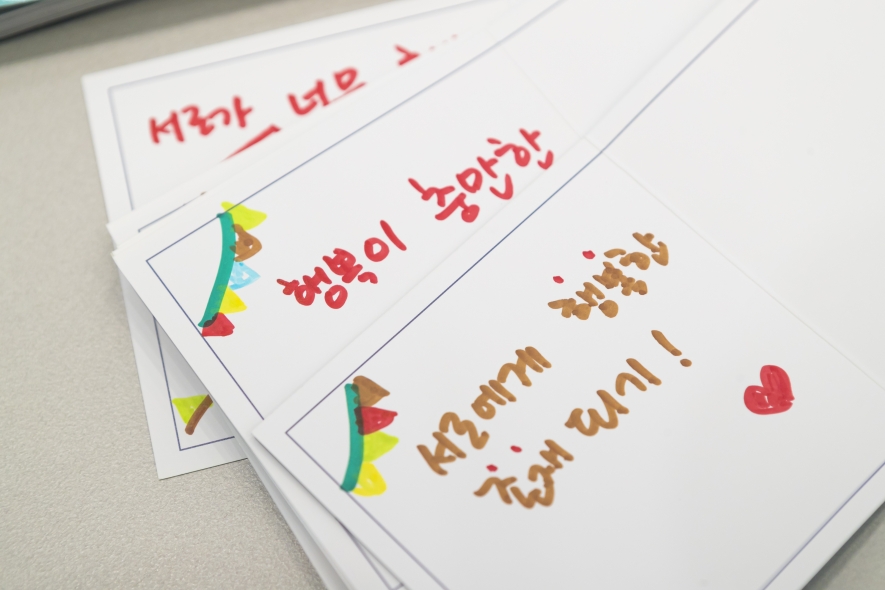 서로가 너므
행복이 충만한
서로에게 행복한
존재 되기!